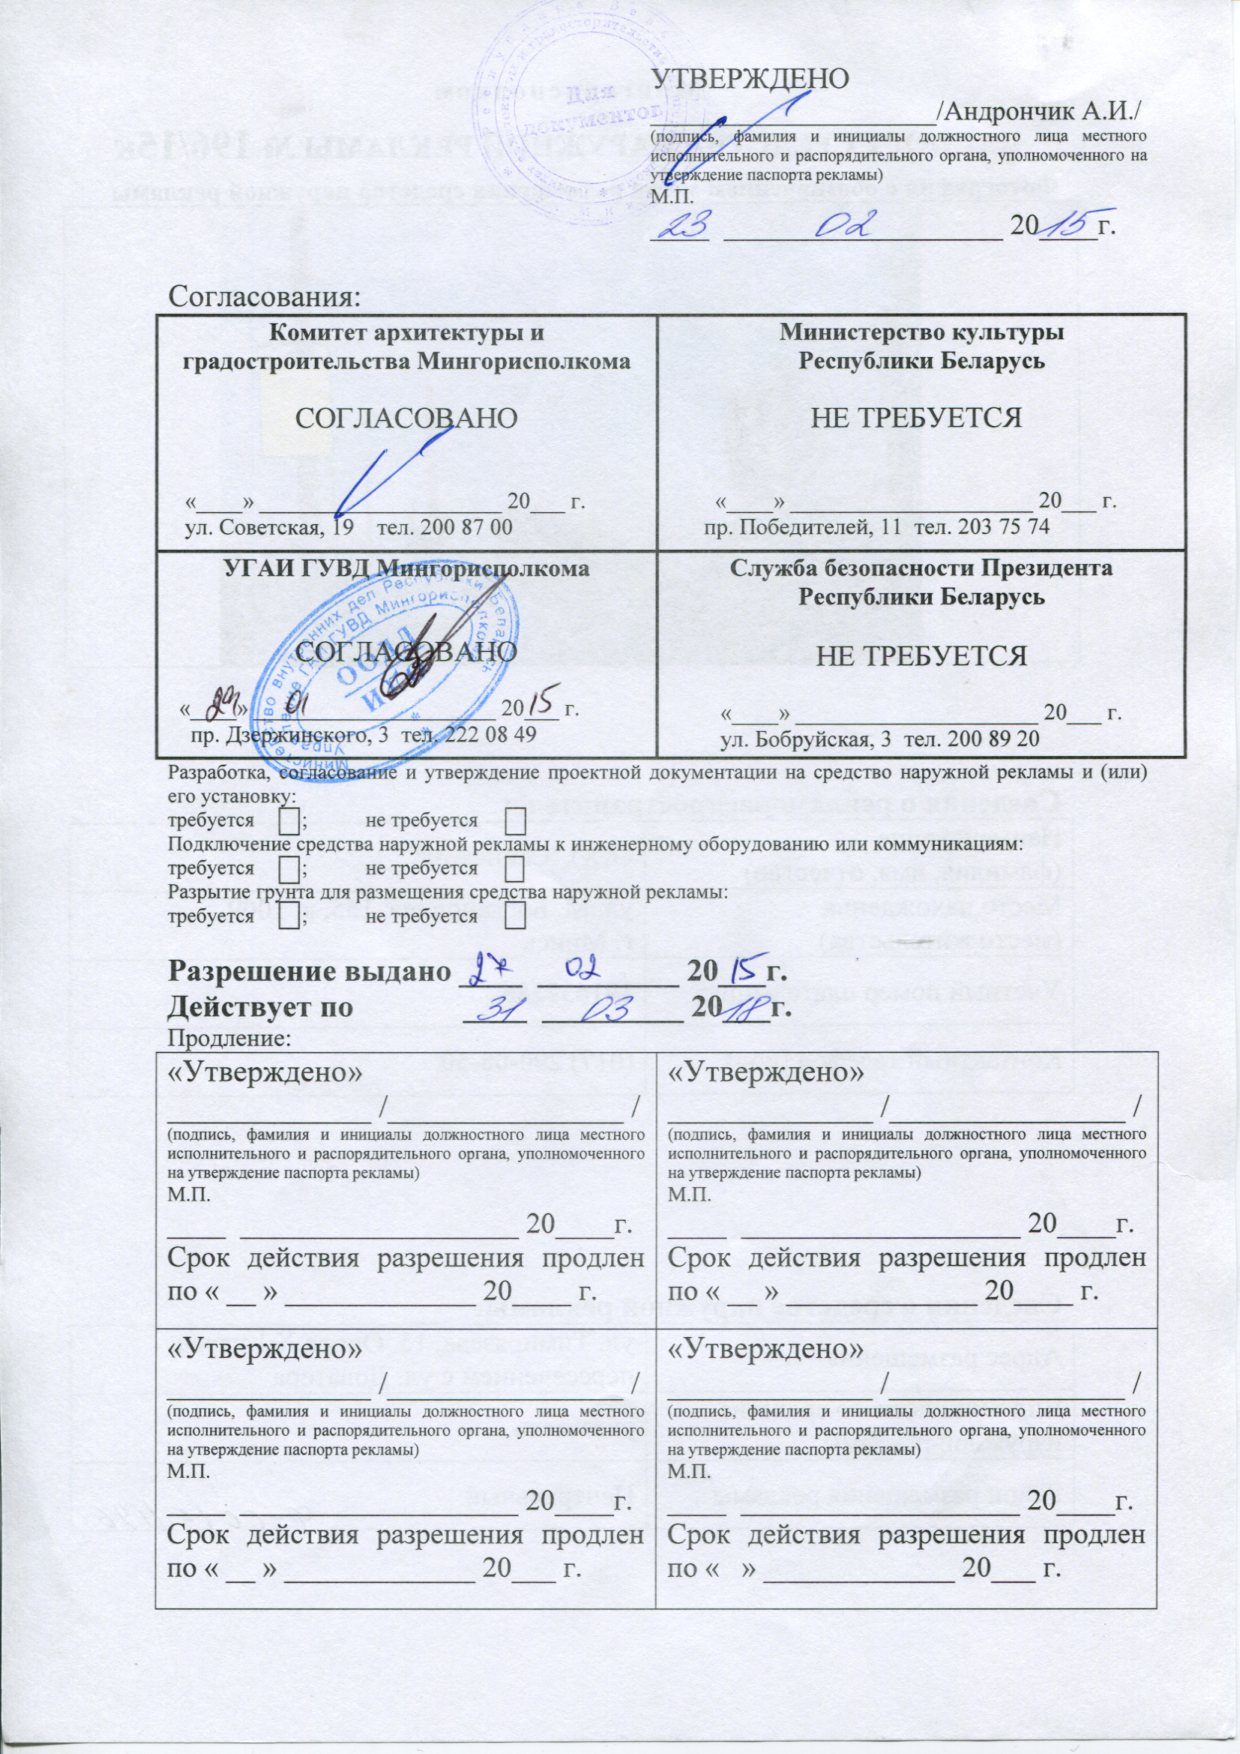 УТВЕРЖДЕНО
____________________/Андрончик А.И./
(подпись, фамилия и инициалы должностного лица местного
исполнительного и распорядительного органа, уполномоченного на
утверждение паспорта рекламы)
М.П.
23 02 2015г.
Для
документов
Согласования:
Комитет архитектуры и
градостроительства Мингорисполкома
СОГЛАСОВАНО
«____» ____________________ 20___ г.
ул. Советская, 19 тел. 200 87 00
Министерство культуры
Республики Беларусь
НЕ ТРЕБУЕТСЯ
«____» ____________________ 20___ г.
пр. Победителей, 11 тел. 203 75 74
УГАИ ГУВД Мингорисполкома
СОГЛАСОВАНО
« » 01 2015 г.
пр. Дзержинского, 3 тел. 222 08 49
Служба безопасности Президента
Республики Беларусь
НЕ ТРЕБУЕТСЯ
«____» ____________________ 20___ г.
ул. Бобруйская, 3 тел. 200 89 20
Разработка, согласование и утверждение проектной документации на средство наружной рекламы и (или)
его установку:
требуется ; не требуется
Подключение средства наружной рекламы к инженерному оборудованию или коммуникациям:
требуется ; не требуется
Разрытие грунта для размещения средства наружной рекламы:
требуется ; не требуется
Разрешение выдано 27 02 2015г.
Действует по 31 03 2018г.
Продление:
«Утверждено»
______________ /________________ /
(подпись, фамилия и инициалы должностного лица местного
исполнительного и распорядительного органа, уполномоченного
на утверждение паспорта рекламы)
М.П.
____ ___________________ 20____г.
Срок действия разрешения продлен
по « __ » _____________ 20____ г.
«Утверждено»
______________ /________________ /
(подпись, фамилия и инициалы должностного лица местного
исполнительного и распорядительного органа, уполномоченного
на утверждение паспорта рекламы)
М.П.
____ ___________________ 20____г.
Срок действия разрешения продлен
по « __ » _____________ 20____ г.
«Утверждено»
______________ /________________ /
(подпись, фамилия и инициалы должностного лица местного
исполнительного и распорядительного органа, уполномоченного
на утверждение паспорта рекламы)
М.П.
____ ___________________ 20____г.
Срок действия разрешения продлен
по « __ » _____________ 20___ г.
«Утверждено»
______________ /________________ /
(подпись, фамилия и инициалы должностного лица местного
исполнительного и распорядительного органа, уполномоченного
на утверждение паспорта рекламы)
М.П.
____ ___________________ 20____г.
Срок действия разрешения продлен
по « » _____________ 20___ г.